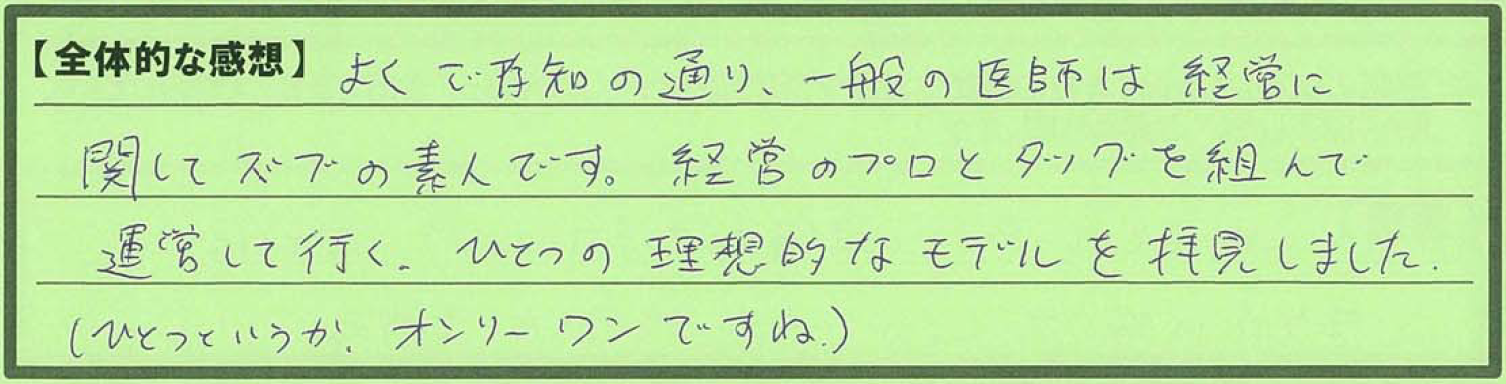 【全体的な感想】よくご存知の通り、一般の医師は経営に
関してズブの素人です。経営のプロとタッグを組んで
運営して行く。ひとつの理想的なモデルを拝見しました。
(ひとつというか、オンリーワンですね。)